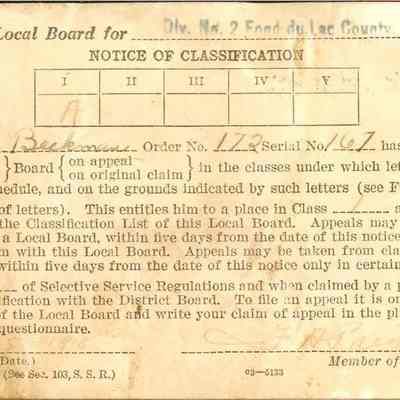 Local Board for Div. No. 2 Fond du Lac County
NOTICE OF CLASSIFICATION
I II III IV V
A
Beekman Order No. 172 Serial No. 167 has
Board { on appeal
on original claim } in the classes under which let
hedule, and on the grounds indicated by such letters (see F
of letters). This entitles him to a place in Class 1 a
the Classification List of this Local Board. Appeals may
a Local Board, within five days from the date of this notice
m with this Local Board. Appeals may be taken from cla
within five days from the date of this notice only in certain
of Selective Service Regulations and when claimed by a p
ification with the District Board. To file an appeal it is on
of the Local Board and write your claim of appeal in the pl
questionnaire.
Date.) Member of
(See Sec. 103, S. S. R.) 03—5133